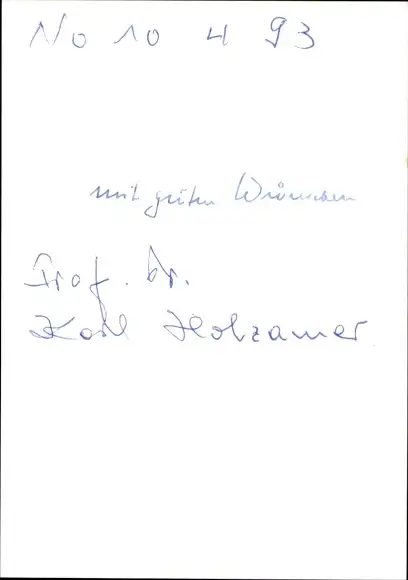 No 10 4 93
mit guten Wünschen
Prof. Dr.
Karl Holzamer